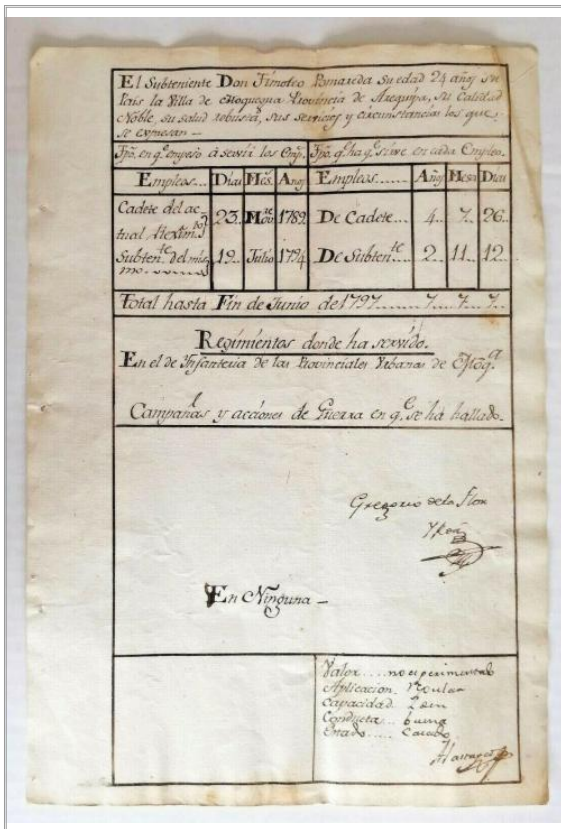 El Subteniente Don Timoteo Pomareda su edad 24 años su
Pais la Villa de Moquegua Provincia de Arequipa, su Calidad
Noble, su salud robusta, sus servicios y circunstancias los que
se expresan –
Tpõ. en q.e empeso á servir los Emp.s Tpõ. q.e ha q.e sirve en cada Empleo.
Empleos... Dias Mes.s Años Empleos...... Años Meses Dias
Cadete del ac-
tual Reximto 23.. Nov.re 1789. De Cadete.... 4.. 7.. 26..
Subten.te del mis-
mo 19.. Julio 1794 De Subten.te 2.. 11.. 12..
Total hasta Fin de Junio de 1797........ 7.. 7.. 7..
Regimientos donde ha servido.
En el de Infanteria de las Provinciales Urbanas de Moq.a
Campañas y acciones de Guerra en q.e se há hallado.
Gregorio de la Flor
En Ninguna –
Valor.... no experimentado
Aplicacion.
Capacidad.
Conducta... buena
Estado..... Casado